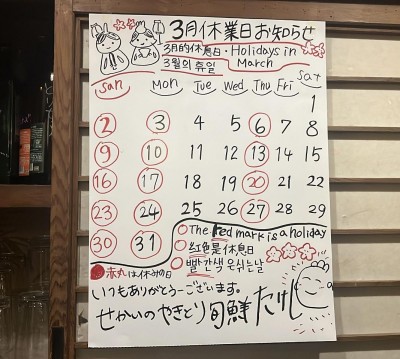 3月休業日お知らせ
3月的休息日・Holidays in
3월의 휴일 March
sun Mon Tue Wed Thu Fri Sat
1
2 3 4 5 6 7 8
9 10 11 12 13 14 15
16 17 18 19 20 21 22
23 24 25 26 27 28 29
30 31
The red mark is a holiday
紅色是休息日
빨간색은 쉬는날
赤丸は休みの日
いつもありがとうございます。
せかいのやきとり 旬鮮 たけし